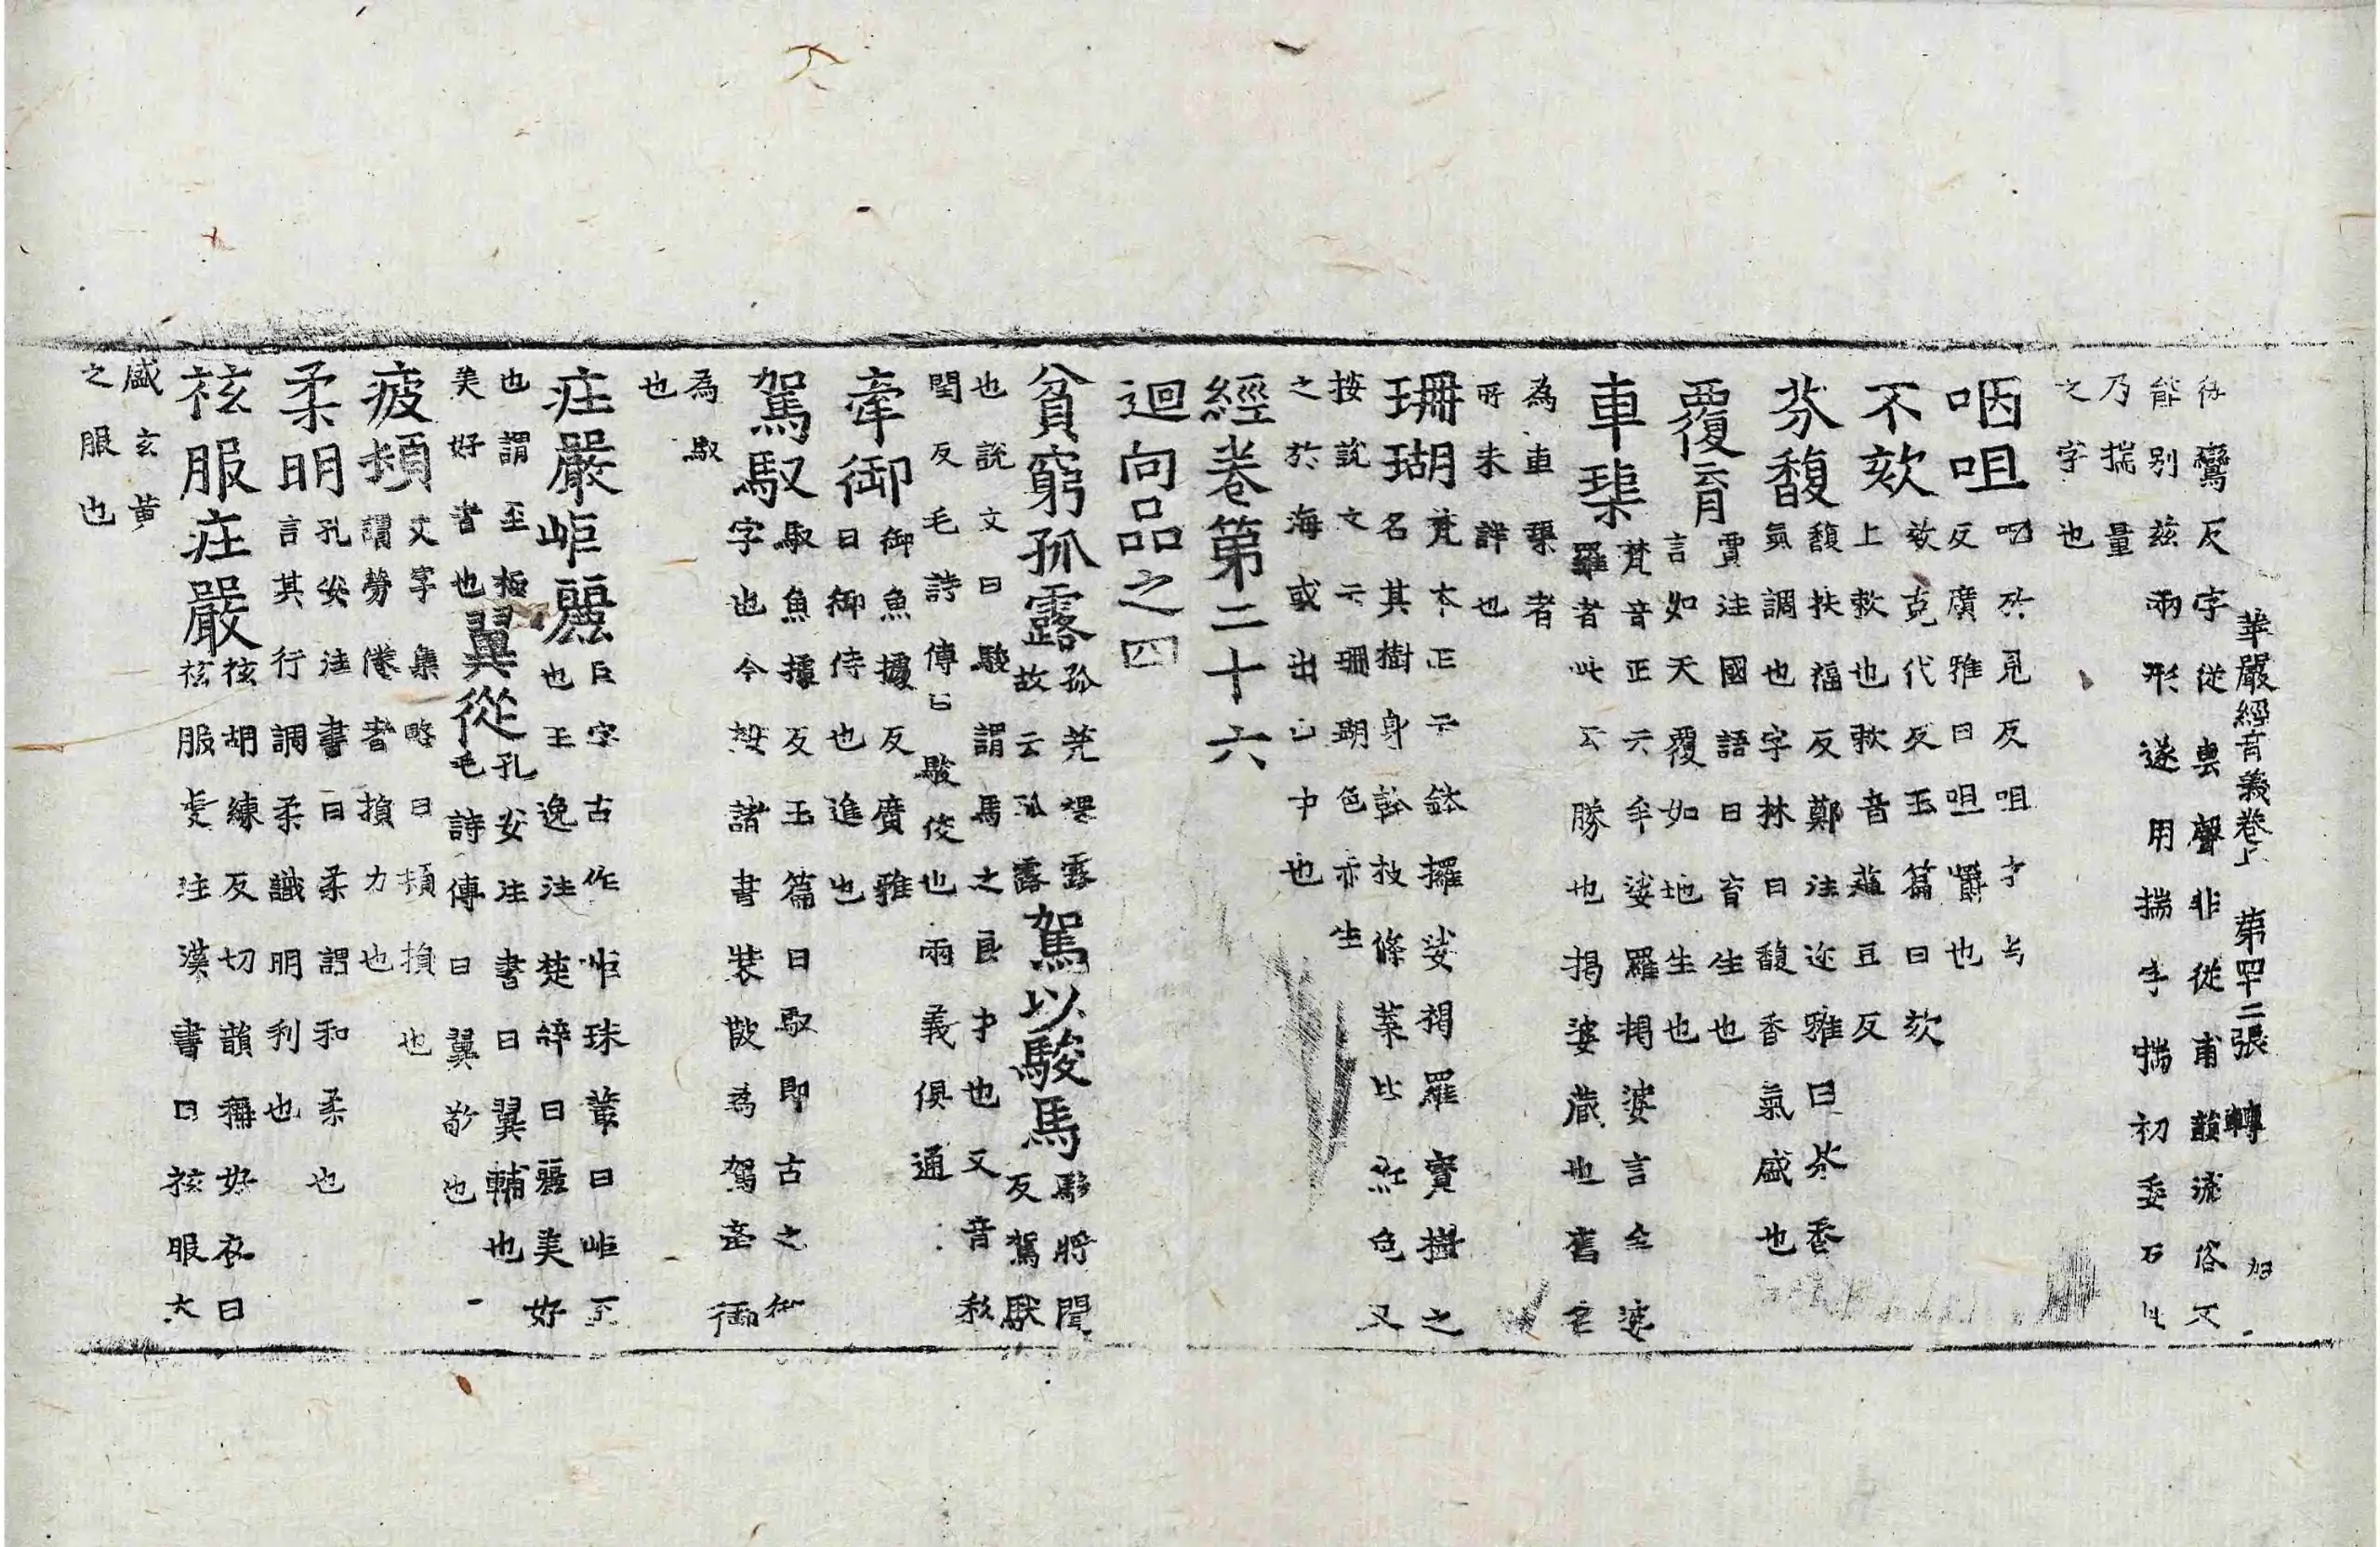 華嚴經音義卷上 第四十二張 轉
彼鸞反字從叀聲非從甫韻流俗不
能別茲兩形遂用揣字揣初委反此
乃揣量
之字也
咽咀 咽於見反咀才与
反廣雅曰咀嚼也
不欬 欬克代反玉篇曰欬
上欶也欶音蘓豆反
芬馥 馥扶福反鄭注迩雅曰芬香
氣調也字林曰馥香氣盛也
覆育 賈注國語曰育生也
言如天覆如地生也
車渠 梵音正云牟娑羅揭婆言全婆
羅者此云勝也揭婆藏也舊名
為車渠者
所未詳也
珊瑚 梵本正云鉢攞娑褐羅寶樹之
名其樹身幹枝條葉皆紅色又
按說文云珊瑚色赤生
之於海或出山中也
經卷第二十六
迴向品之四
貧窮孤露 孤㷀裸露
故云孤露 駕以駿馬 駿將閏
反駕馱
也說文曰駿謂馬之良才也又音私
閏反毛詩傳曰駿俊也兩義俱通
牽御 御魚據反廣雅
曰御侍也進也
駕馭 馭魚據反玉篇曰馭即古之御
字也今按諸書裝駮為駕𡸁御
為馭
也
庄嚴岠麗 巨字古作岠珠叢曰岠至
也王逸注楚辝曰麗美好
也謂至極
美好者也 翼從 孔安注書曰翼輔也
毛詩傳曰翼敬也
疲頓 文字集略曰頓損也
謂勞倦者損力也
柔明 孔安注書曰柔謂和柔也
言其行調柔識明利也
袨服庄嚴 袨胡練反切韻稱好衣曰
袨服䖍注漢書曰袨服大
盛玄黄
之服也